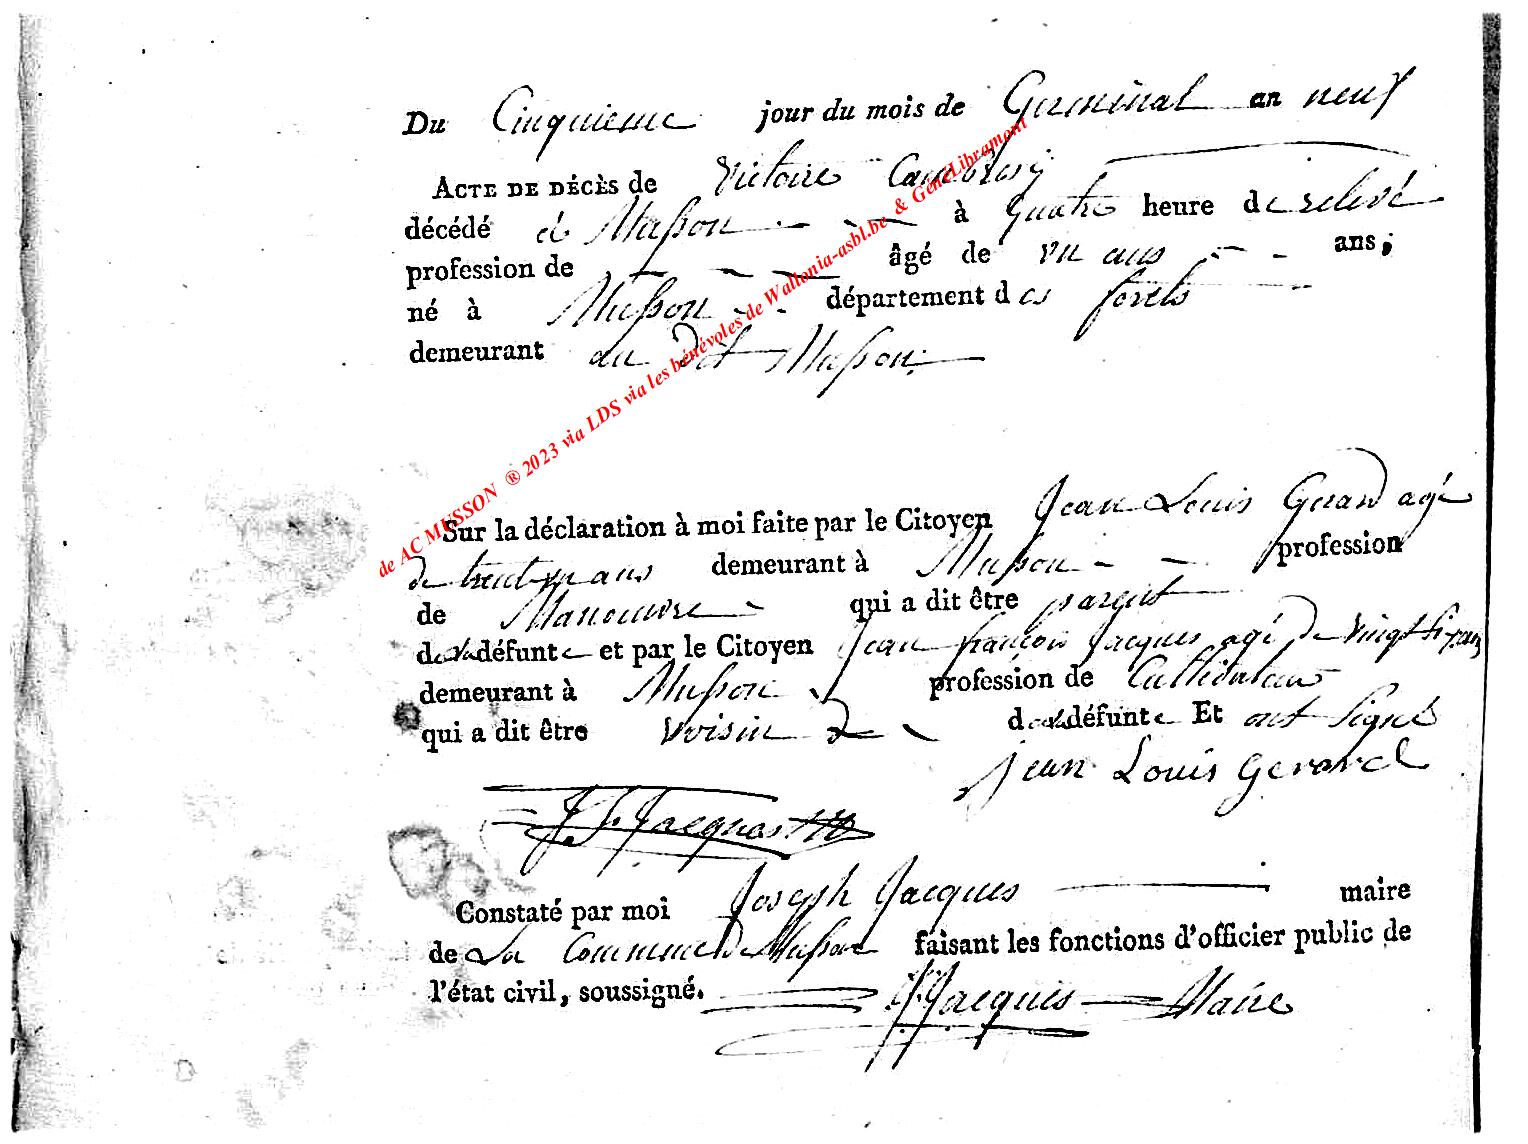 Du Cinquieme jour du mois de Germinal an neuf
ACTE DE DÉCÈS de Victoire
décédé à Musson à quatre heure de relevé
profession de âgé de un ans ans;
né à Musson département des forets
demeurant au dit Musson
Sur la déclaration à moi faite par le Citoyen Jean Louis Gerard agé
de trent un ans demeurant à Musson profession
de Manouvre qui a dit être parent
de la défunte et par le Citoyen Jean françois Jacques agé de vingt six ans
demeurant à Musson profession de Cultivateur
qui a dit être Voisin de la défunte Et ont signé
jean Louis gerard
J. F. Jacques
Constaté par moi Joseph Jacques maire
de La Commune de Musson faisant les fonctions d'officier public de
l'état civil, soussigné. J. Jacques Maire
de AC MUSSON ® 2023 via LDS via les bénévoles de Wallonia-asbl.be & GénéLibramont